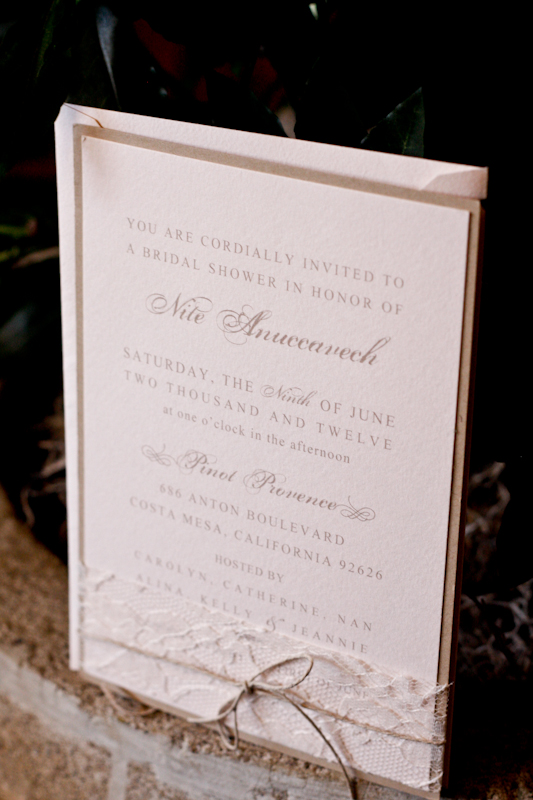 YOU ARE CORDIALLY INVITED TO
A BRIDAL SHOWER IN HONOR OF
Nite Anuccavech
SATURDAY, THE Ninth OF JUNE
TWO THOUSAND AND TWELVE
at one o'clock in the afternoon
Pinot Provence
686 ANTON BOULEVARD
COSTA MESA, CALIFORNIA 92626
HOSTED BY
CAROLYN, CATHERINE, NAN
ALINA, KELLY & JEANNIE
JUNE